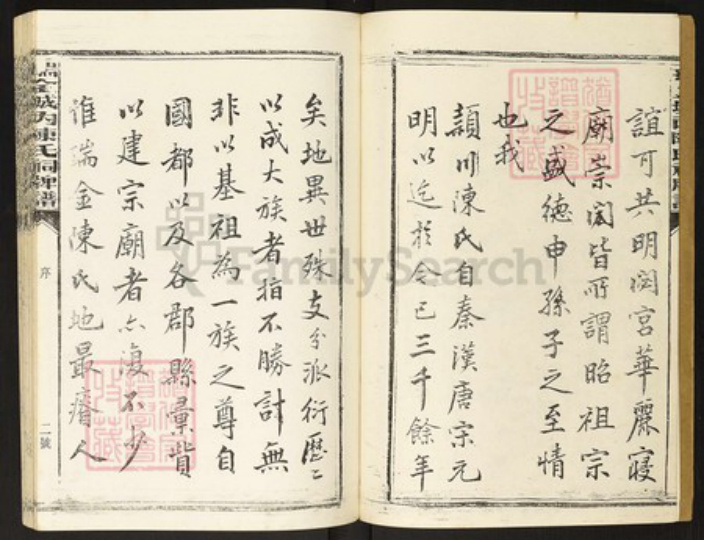 誼可共明閟宮華麗寢
廟崇閎皆所謂昭祖宗
之盛德申孫子之至情
也我
潁川陳氏自秦漢唐宋元
明以迄於今已三千餘年
矣地異世殊支分派衍歷〻
以成大族者指不勝計無
非以基祖為一族之尊自
國都以及各郡縣彙貲
以建宗廟者亦復不少
惟瑞金陳氏地最瘠人
瑞金城內陳氏祠牌譜
序
二號
FamilySearch